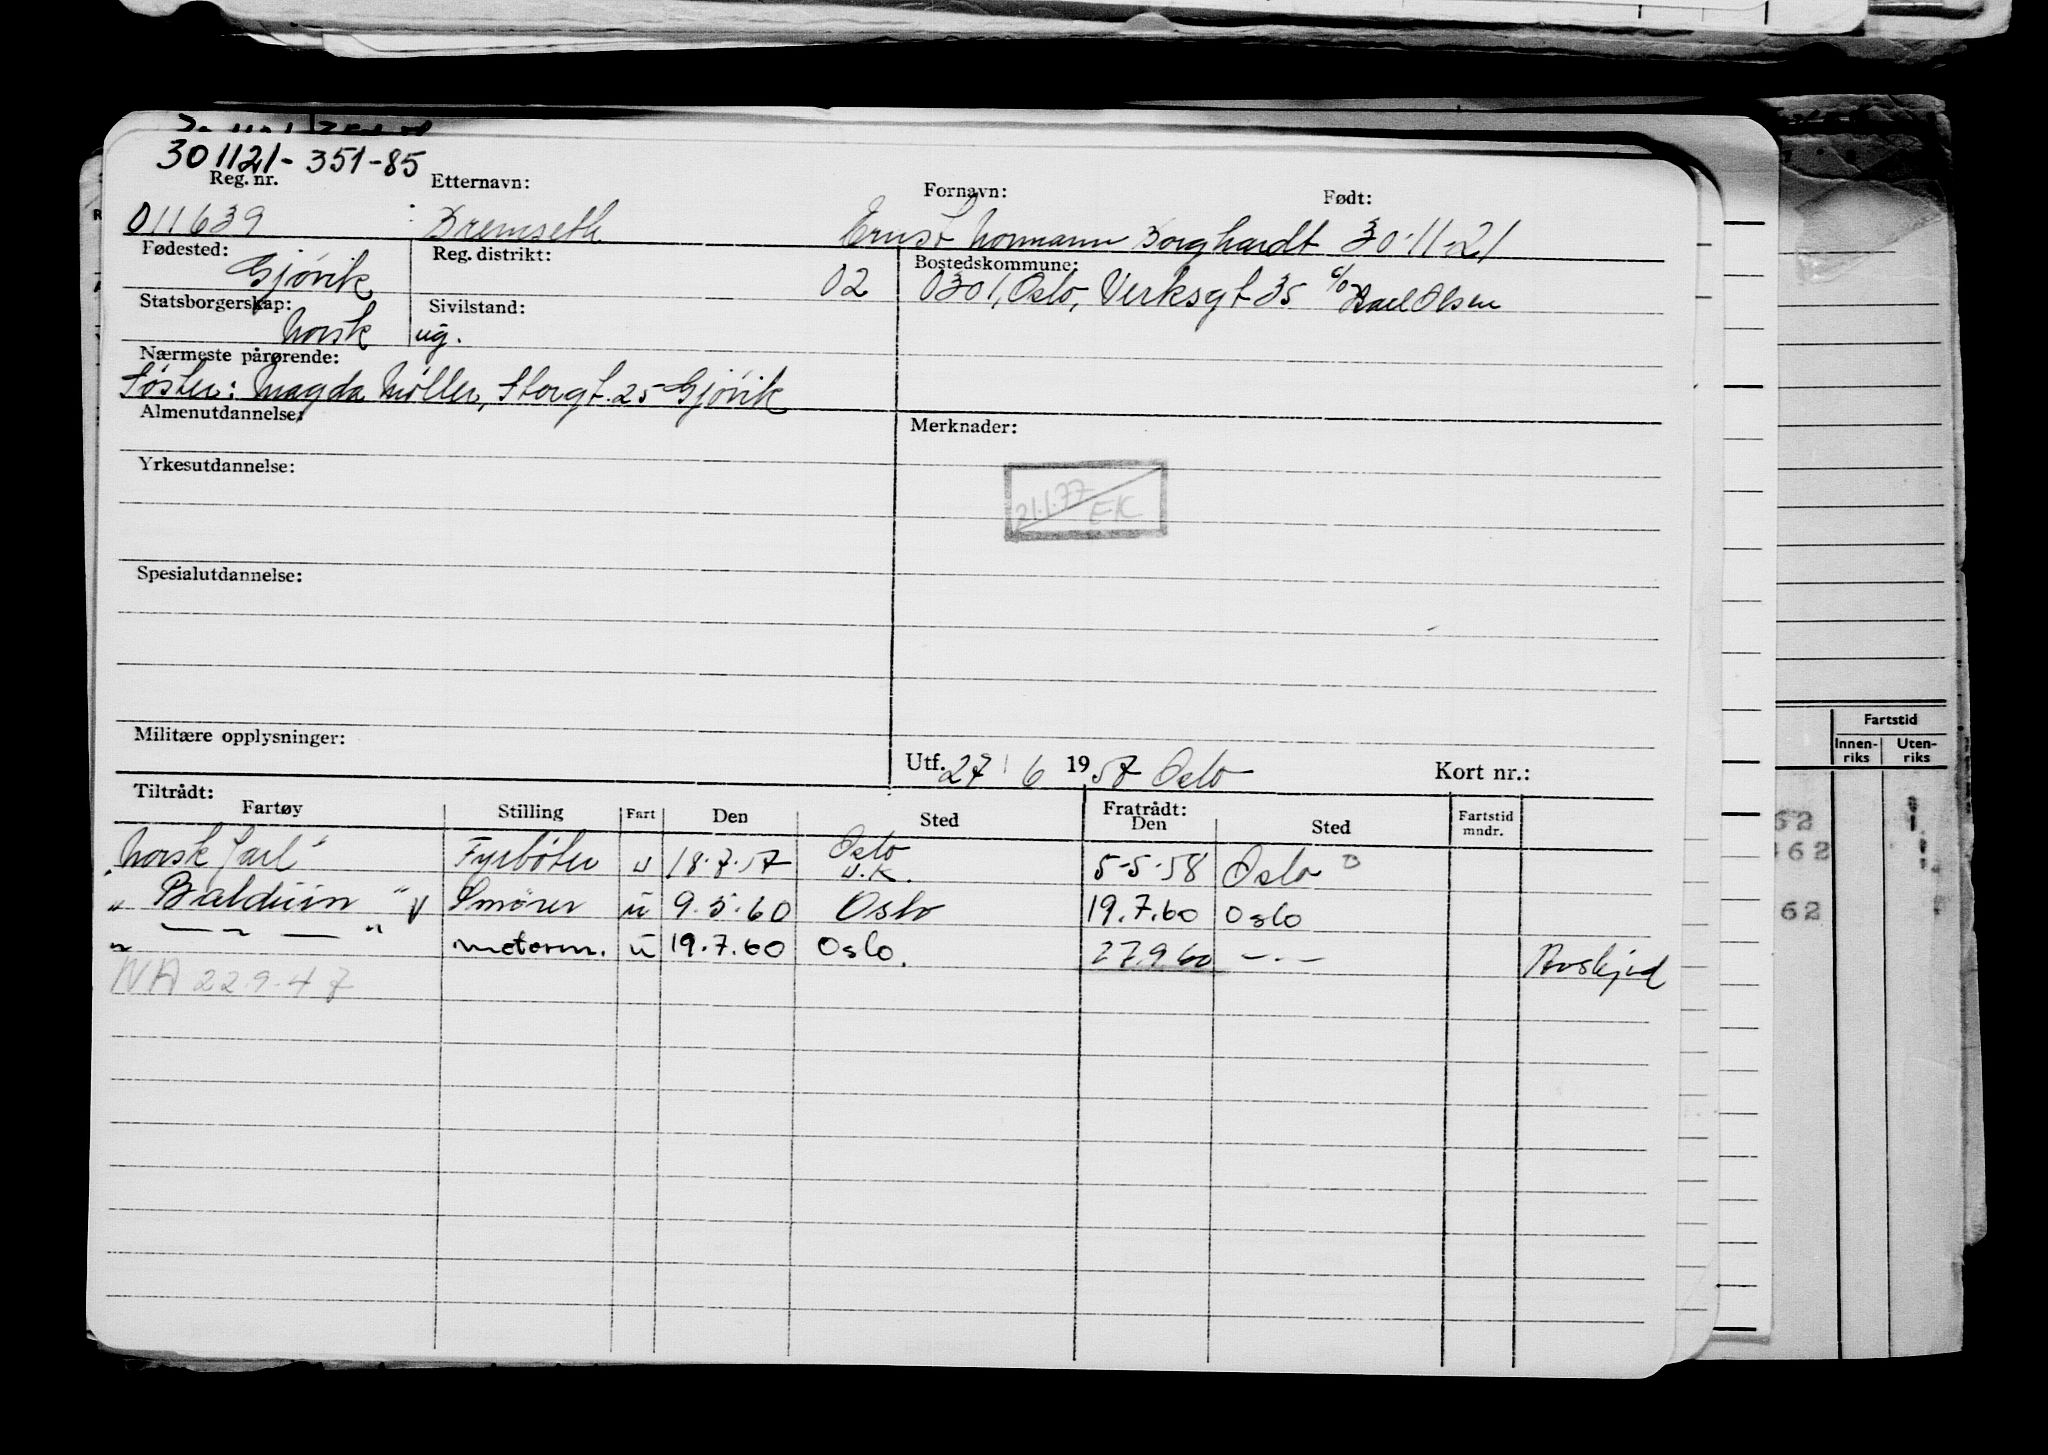 301121-351-85
Reg. nr. Etternavn: Fornavn: Født:
011639 Bremseth Ernst Normann Borghardt 30-11-21
Fødested: Gjøvik Reg. distrikt: 02 Bostedskommune: 0301, Oslo, Verksgt 35 c/o Karl Olsen
Statsborgerskap: Norsk Sivilstand: ug.
Nærmeste pårørende:
Søster: Magda Møller, Storgt. 25 Gjøvik
Almenutdannelse: Merknader:
Yrkesutdannelse:
21.1.77 EK
Spesialutdannelse:
Militære opplysninger:
Utf. 27/6 1957 Oslo Kort nr.:
Tiltrådt: Fratrådt:
Fartøy Stilling Fart Den Sted Den Sted Fartstid mndr.
"Norsk Jarl" Fyrbøter u 18.7.57 Oslo U.K. 5-5-58 Oslo
"Balduin" Smører u 9.5.60 Oslo 19.7.60 Oslo
" — " — " motorm. u 19.7.60 Oslo. 27.9.60 — " — Avskjed
NA 22.9.47
Fartstid
Innen-riks Uten-riks
62
62
62